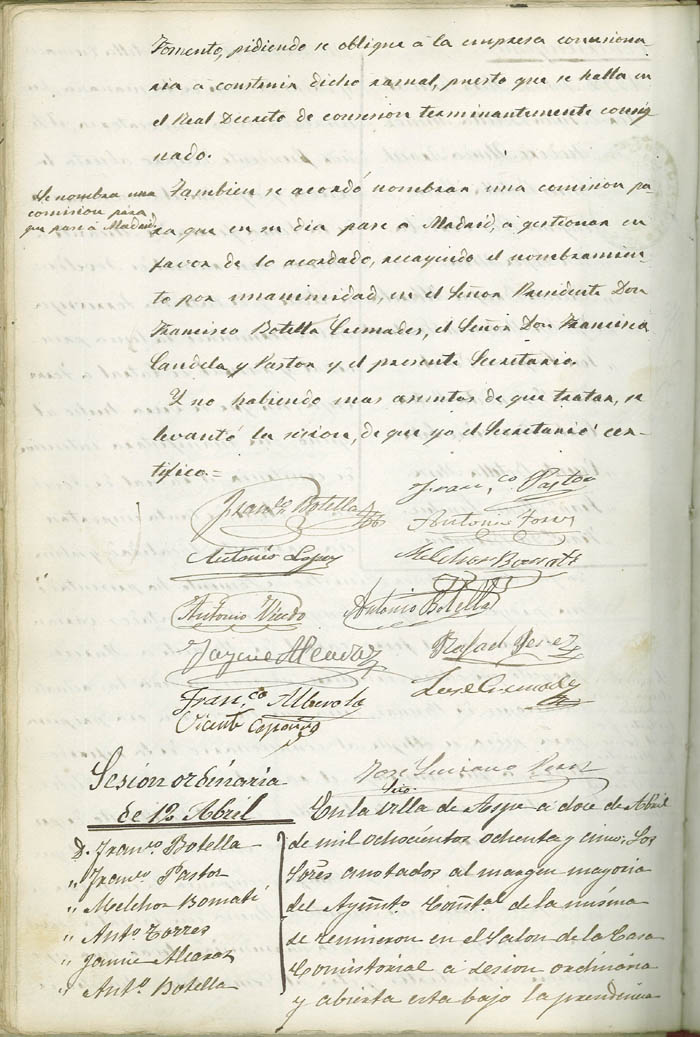 Fomento, pidiendo se obligue á la empresa concesiona-
ria á construir dicho ramal, puesto que se halla en
el Real Decreto de concesion terminantemente consig-
nado.
Se nombra una
comision para
que pase á Madrid
Tambien se acordó nombrar una comision pa-
ra que en su dia pase á Madrid, á gestionar en
favor de lo acordado, recayendo el nombramien-
to por unanimidad, en el Señor Presidente Don
Francisco Botella Cremades, el Señor Don Francisco
Candela y Pastor y el presente Secretario.
Y no habiendo mas asuntos de que tratar, se
levantó la sesion, de que yo el Secretario cer-
tifico.=
Franco. Botella
Franco. Pastor
Antonio Torres
Antonio Lopez
Melchor Bonmati
Antonio
Antonio Botella
Jayme Alcaraz
Rafael Perez
Franco. Alberola
José Cremades
Vicente
José Luciano Perez
Srio.
Sesion ordinaria
de 12 Abril
D. Franco. Botella
" Franco. Pastor
" Melchor Bomatí
" Anto. Torres
" Jaime Alcaraz
" Anto. Botella
En la villa de Aspe á doce de Abril
de mil ochocientos ochenta y cinco: Los
Sores. anotados al margen mayoria
del Ayunto. Contal. de la misma
se reunieron en el Salon de la Casa
Consistorial á sesion ordinaria
y abierta esta bajo la presidencia